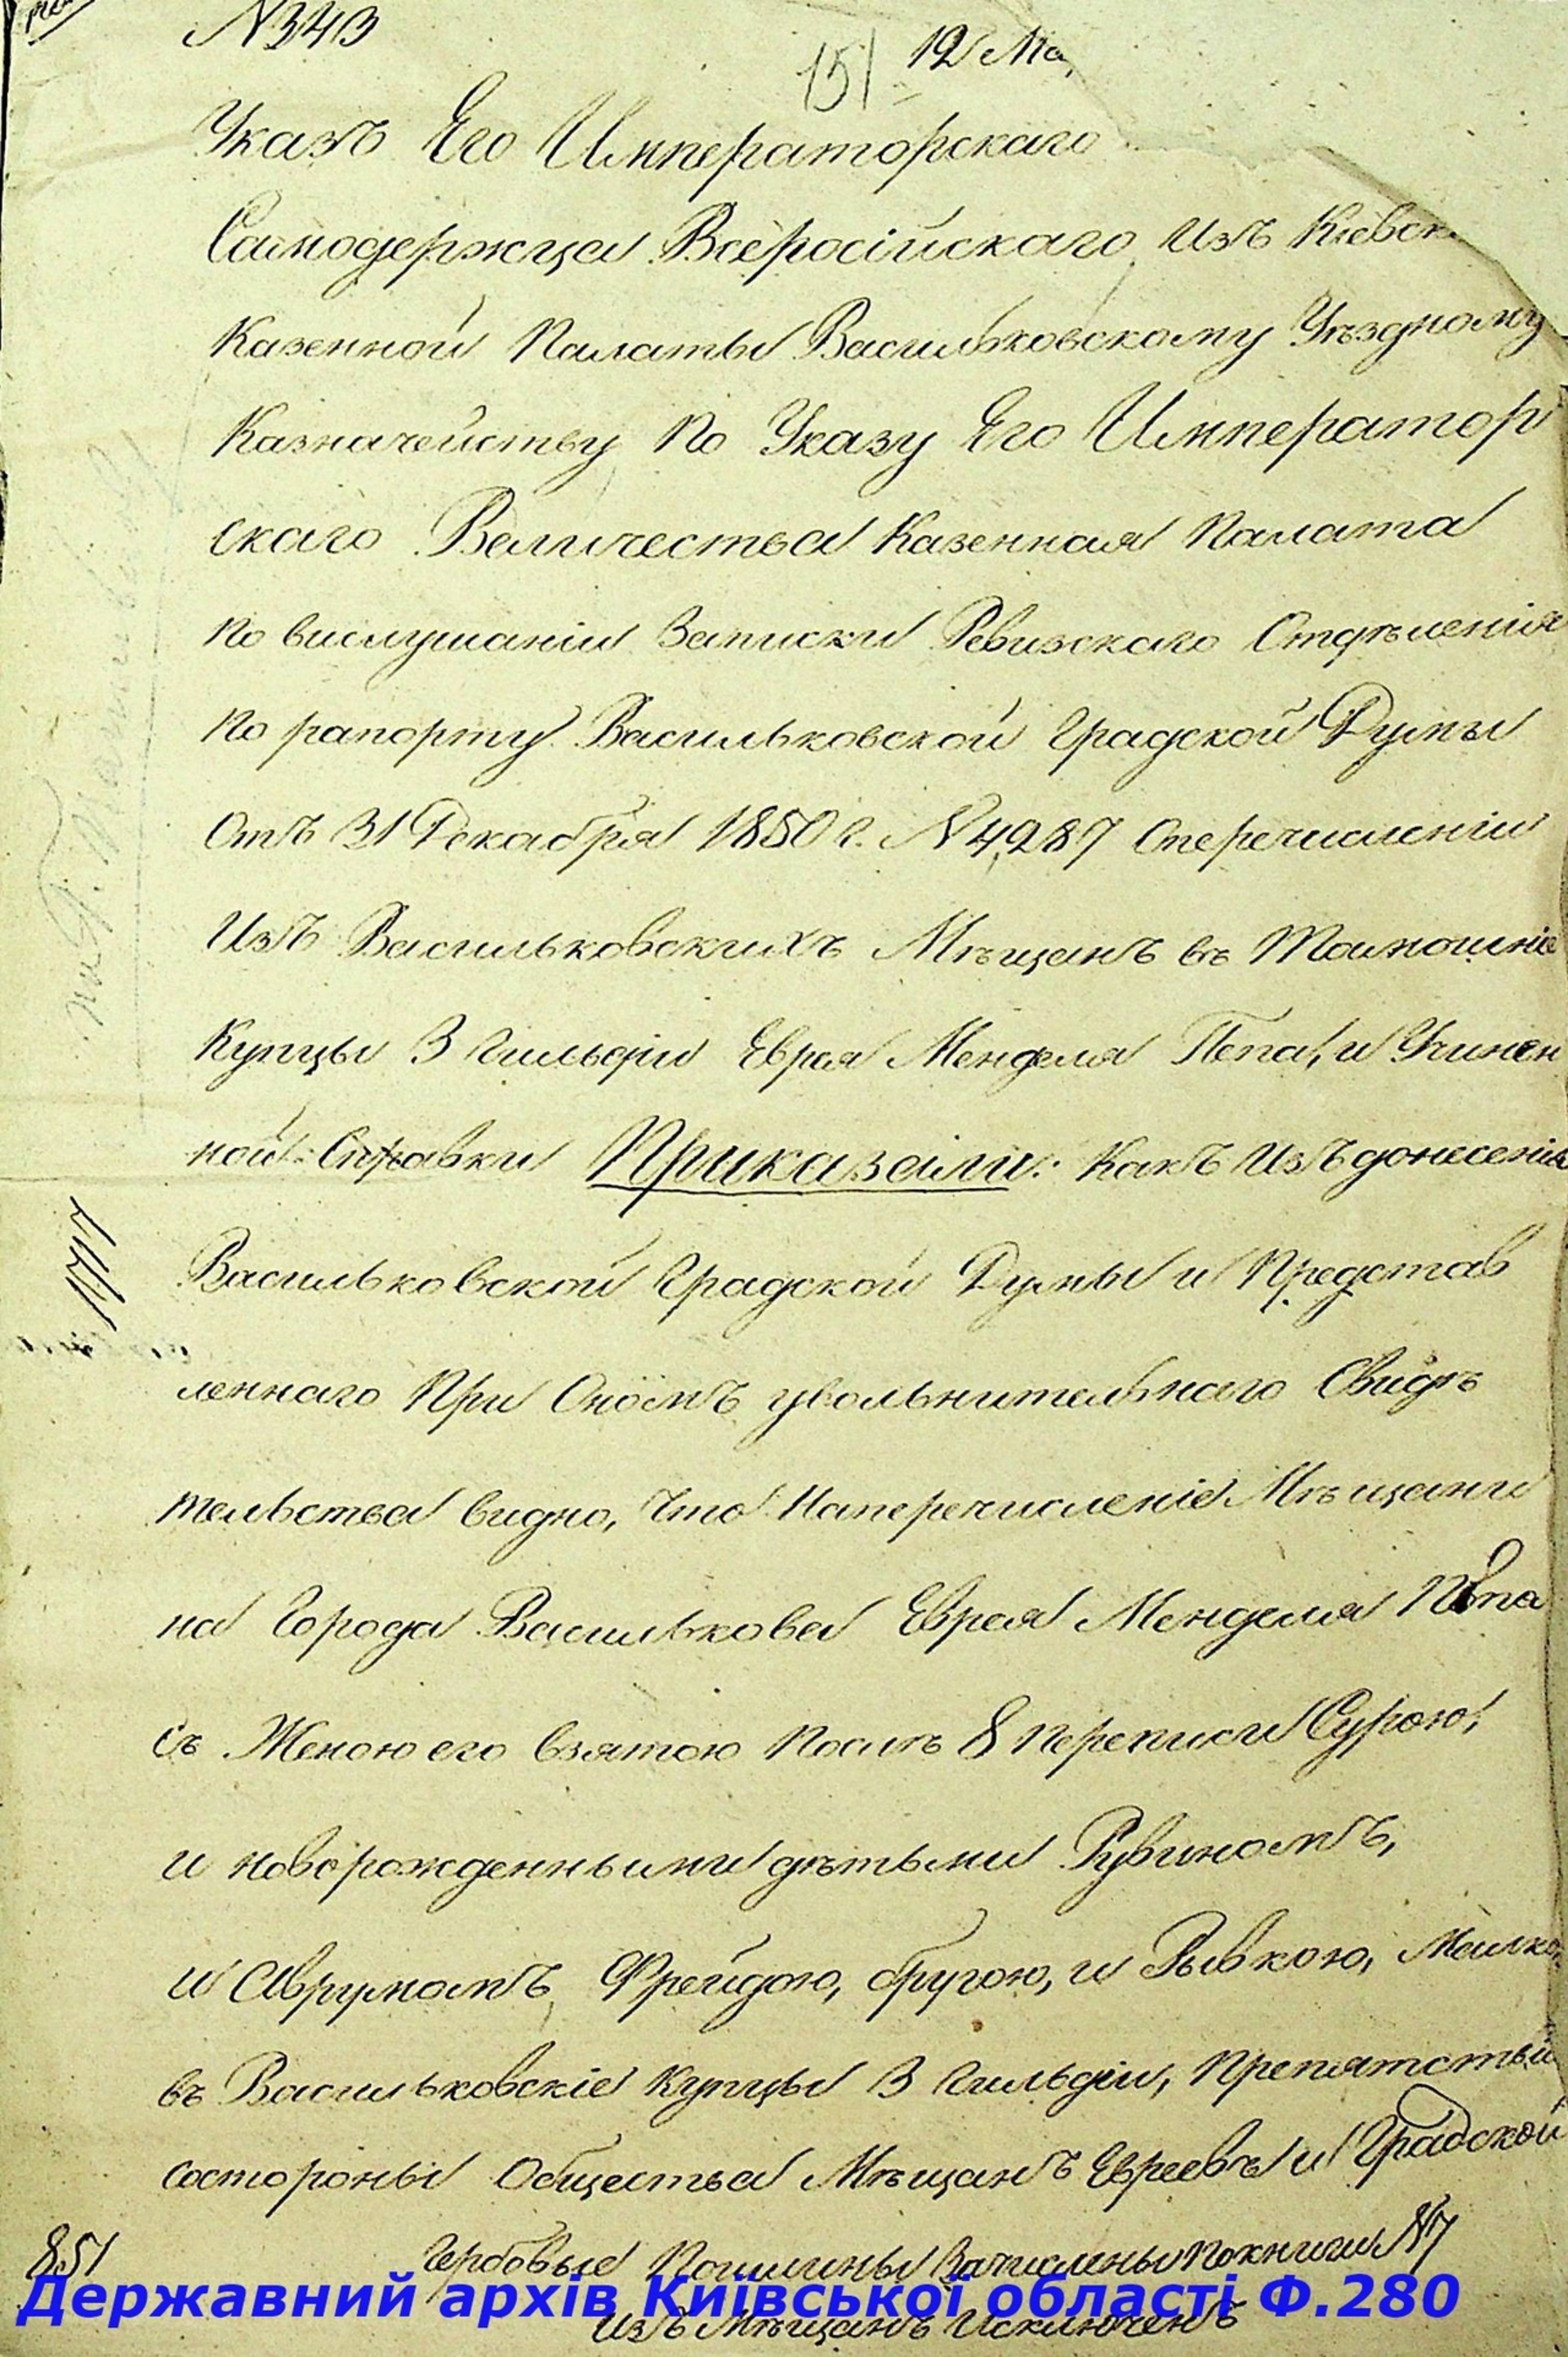 N 343
151 12 Ма
Указъ Его Императорскаго
Самодержца Всеросійскаго Изъ Кіевск
Казенной Палаты Васильковскому Уѣздному
Казначейству По Указу Его Император
скаго Величества Казенная Палата
По вислушаніи Записки Ревизскаго Отдѣленія
По рапорту Васильковской Градской Думы
Отъ 31 Декабря 1850 г. N 4287 Оперечисленіи
Изъ Васильковскихъ Мѣщанъ въ
Купцы 3 гильдіи Еврея Менделя Пепа, и Учинен
ной Справки Приказали: Какъ Изъ донесенія
Васильковской Градской Думы и Представ
леннаго При Ономъ увольнительнаго Свидѣ
тельства видно, Что Наперечисленіе Мѣщани
на Города Василькова Еврея Менделя Пепа
съ Женою его взятою Послѣ 8 переписи Сурою,
и новорожденными дѣтьми Рувиномъ,
и Аврумомъ, Фрейдою, Бругою, и Рывкою, Малко
въ Васильковскіе Купцы 3 Гильдіи, Препятствій
состороны Общества Мѣщанъ Евреевъ и Градской
851 Гербовые Пошлины Зачислены покниги N 7
Изъ Мѣщанъ Исключенъ
Державний архів Київської області Ф.280